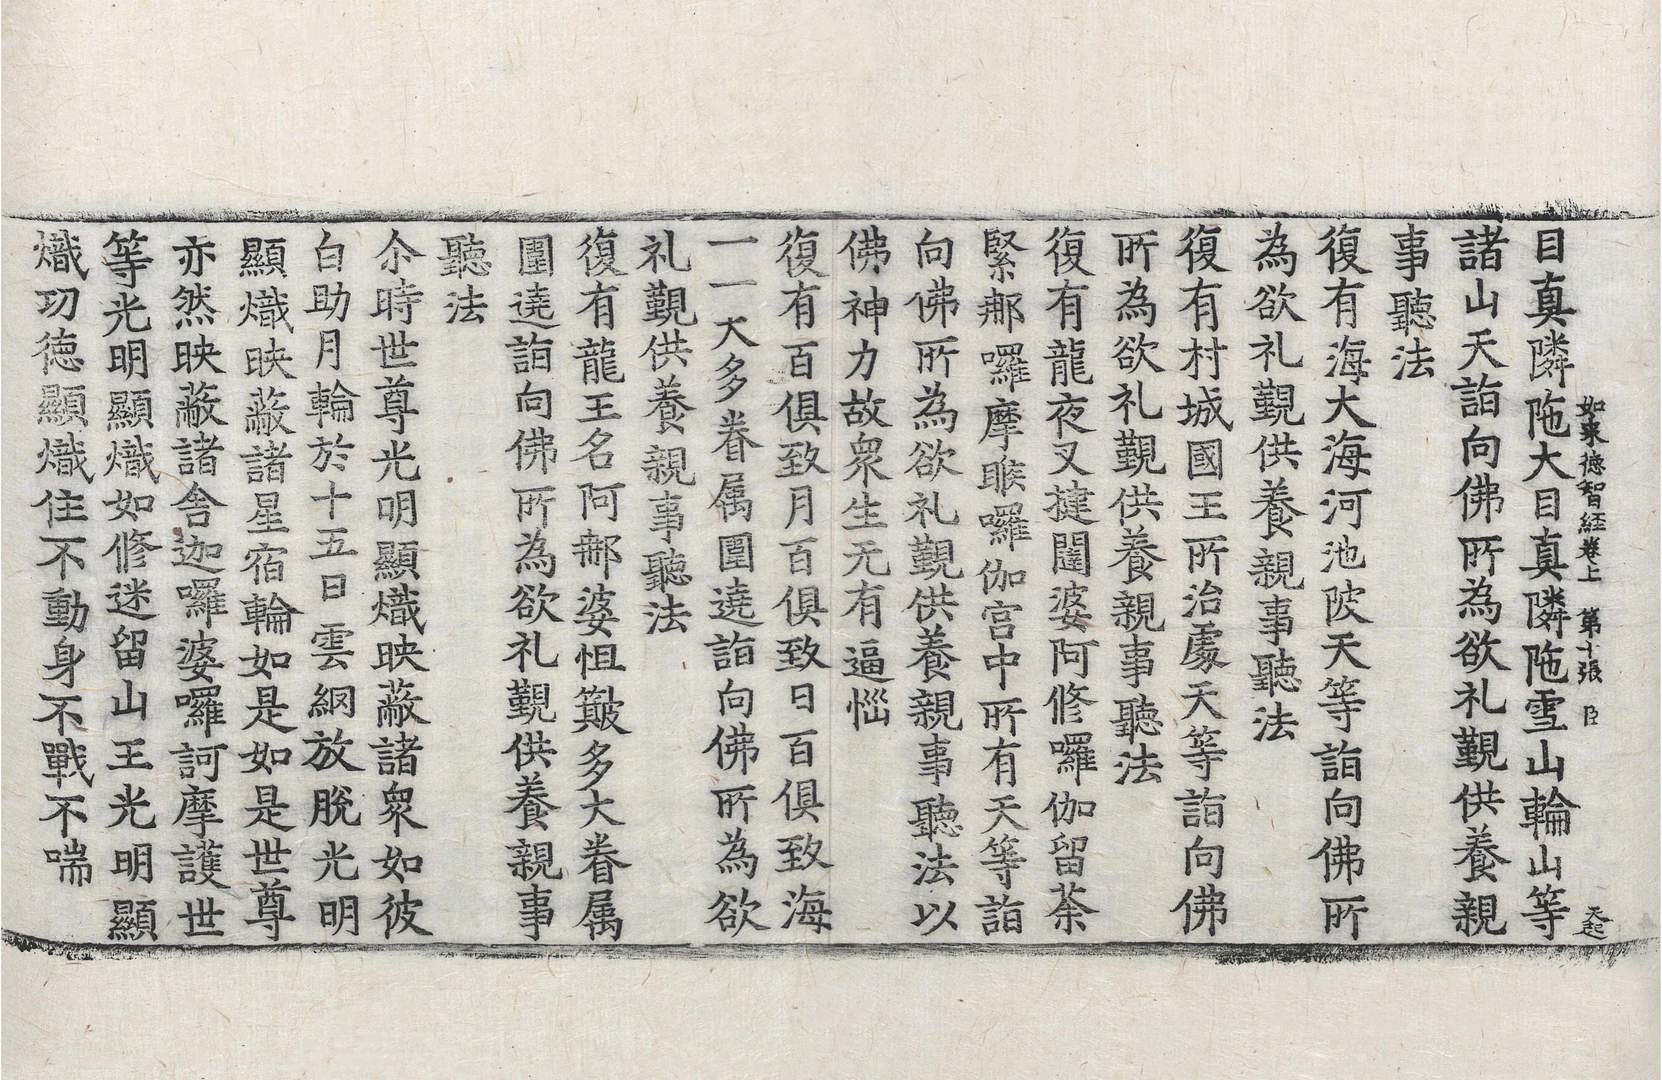 目真隣陁大目真隣陁雪山輪山等
諸山天詣向佛所為欲礼覲供養親
事聽法
復有海大海河池陂天等詣向佛所
為欲礼覲供養親事聽法
復有村城國王所治處天等詣向佛
所為欲礼覲供養親事聽法
復有龍夜叉揵闥婆阿修囉伽留荼
緊那囉摩睺囉伽宮中所有天等詣
向佛所為欲礼覲供養親事聽法以
佛神力故衆生无有逼惱
復有百俱致月百俱致日百俱致海
一一大多眷属圍遶詣向佛所為欲
礼覲供養親事聽法
復有龍王名阿那婆怛簸多大眷属
圍遶詣向佛所為欲礼覲供養親事
聽法
尒時世尊光明顯熾映蔽諸衆如彼
白助月輪於十五日雲網放脫光明
顯熾映蔽諸星宿輪如是如是世尊
亦然映蔽諸舍迦囉婆囉訶摩護世
等光明顯熾如修迷留山王光明顯
熾功徳顯熾住不動身不戰不喘
如來德智經卷上 第十張 臣
天起